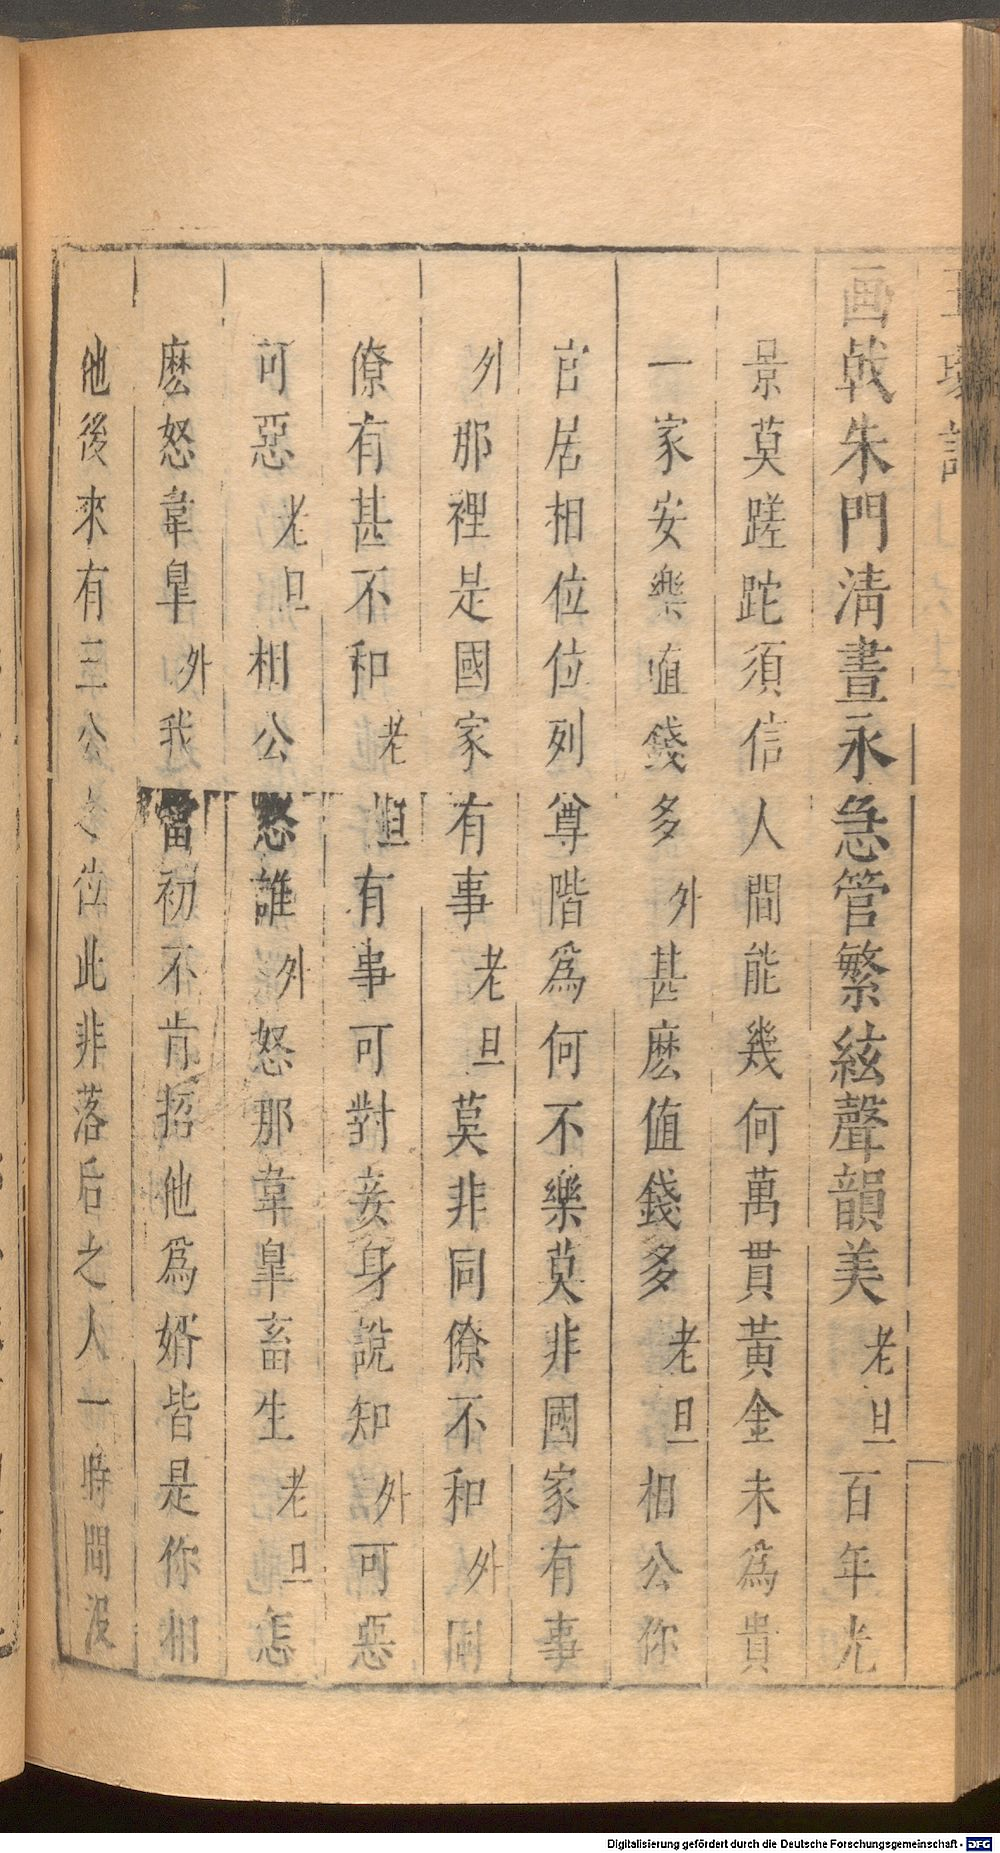 画戟朱門清晝永急管繁絃聲韻美老旦百年光
景莫蹉跎須信人間能幾何萬貫黃金未爲貴
一家安樂値錢多外甚麽値錢多老旦相公你
官居相位位列尊階爲何不樂莫非國家有事
外那裡是國家有事老旦莫非同僚不和外同
僚有甚不和老旦有事可對妾身說知外可惡
可惡老旦相公怒誰外怒那韋臯畜生老旦怎
麽怒韋臯外我當初不肯招他爲婿皆是你相
他後來有三公之位此非落后之人一時間没
Digitalisierung gefördert durch die Deutsche Forschungsgemeinschaft - DFG